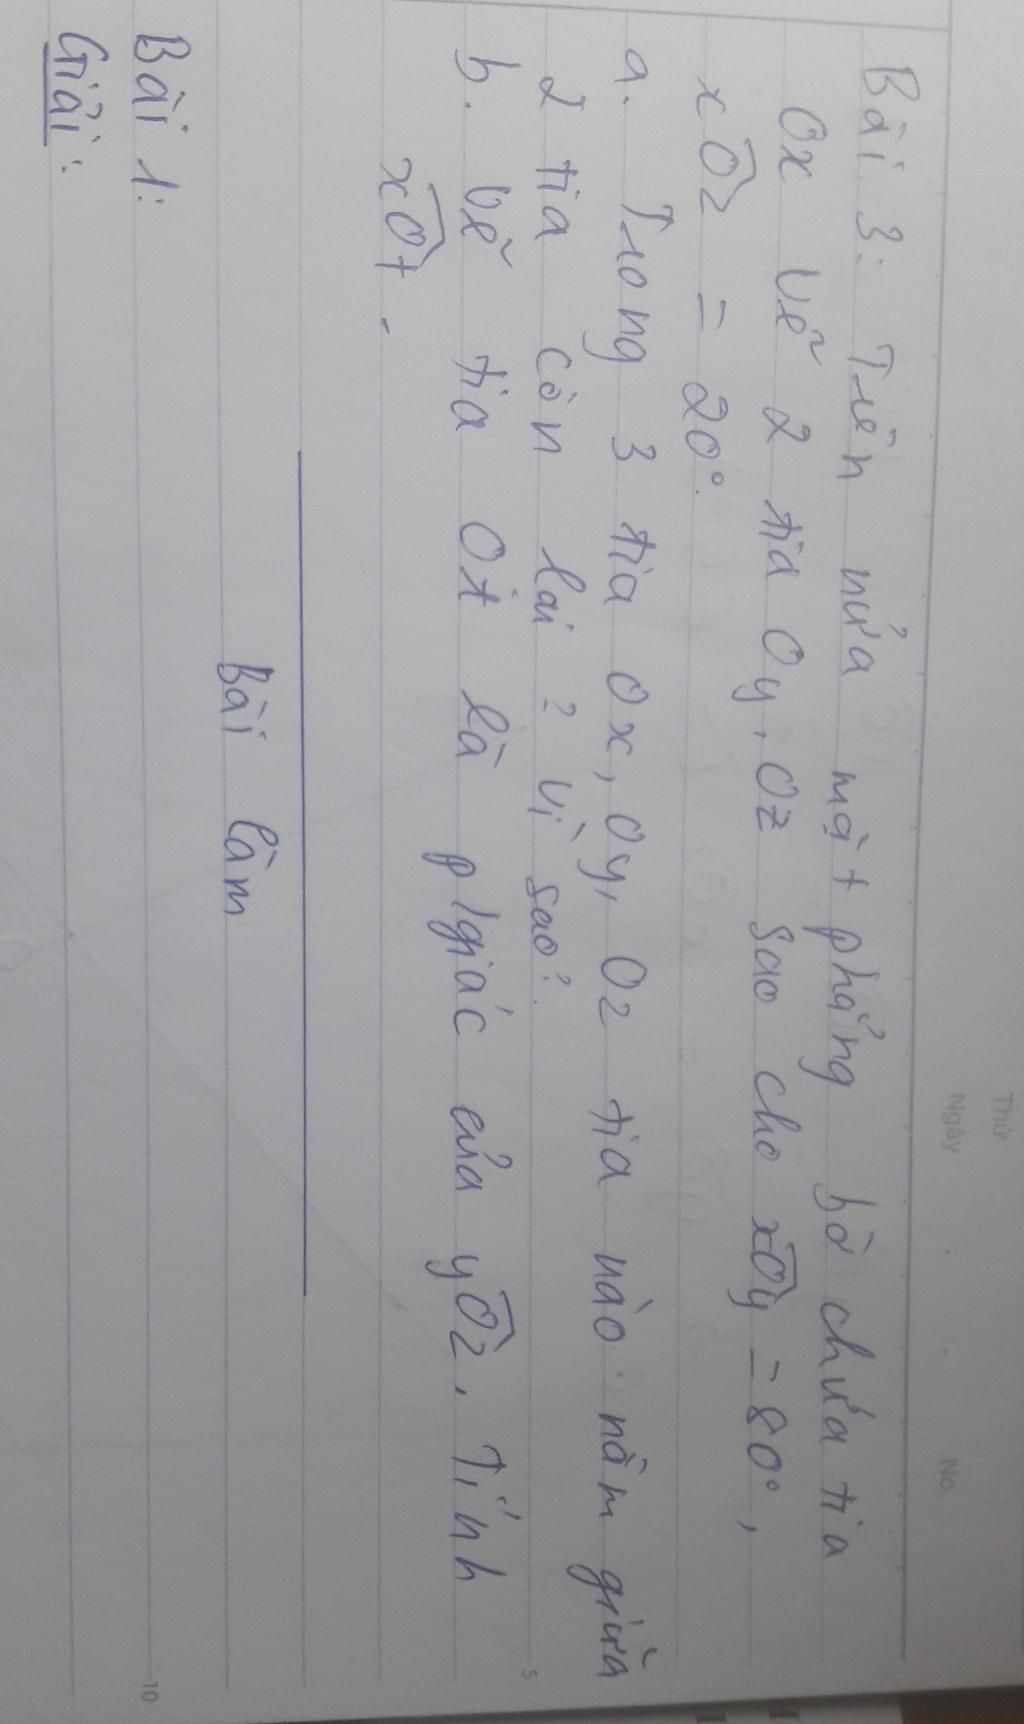 Thứ
Ngày
No.
Bài 3: Trên nửa mặt phẳng bờ chứa tia
Ox vẽ 2 tia Oy, Oz sao cho xOy = 80°,
xOz = 20°.
a. Trong 3 tia Ox, Oy, Oz tia nào nằm giữa
2 tia còn lại? Vì sao?
b. Vẽ tia Ot là p/giác của yOz. Tính
xOt.
Bài làm
Bài 1:
Giải:
5
10